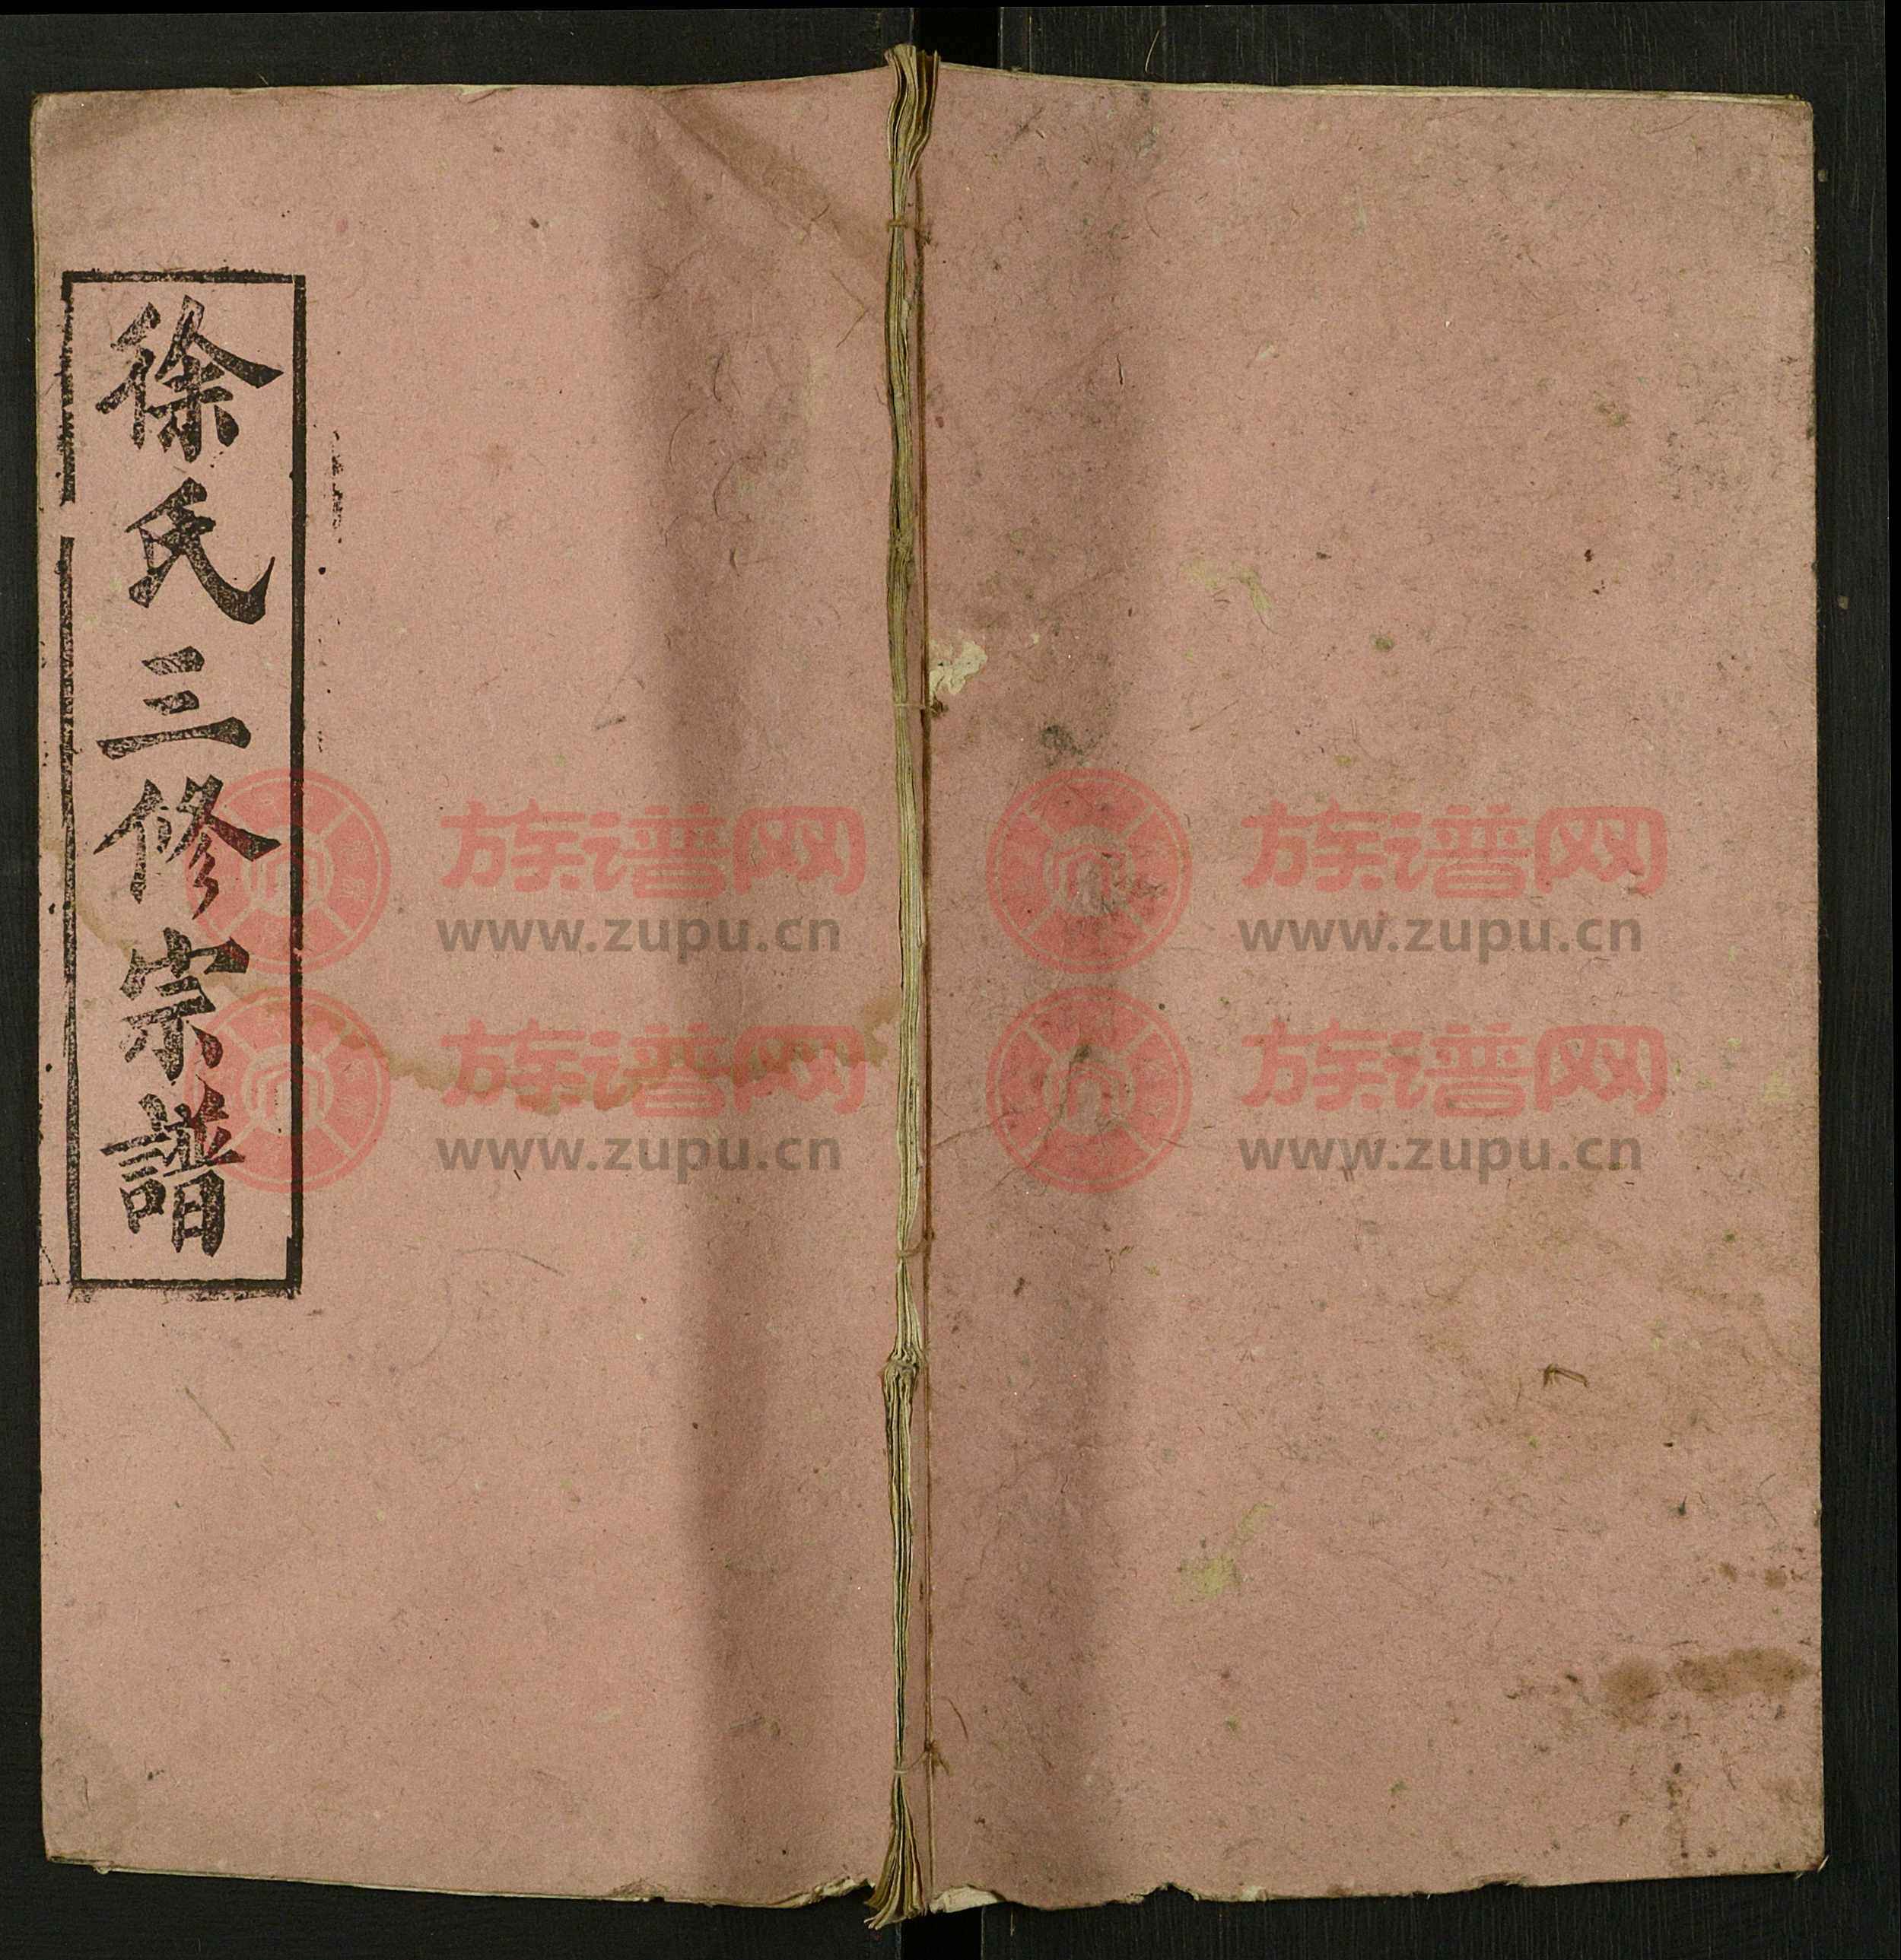 徐氏三修宗譜
族谱网
www.zupu.cn
族谱网
www.zupu.cn
族谱网
www.zupu.cn
族谱网
www.zupu.cn